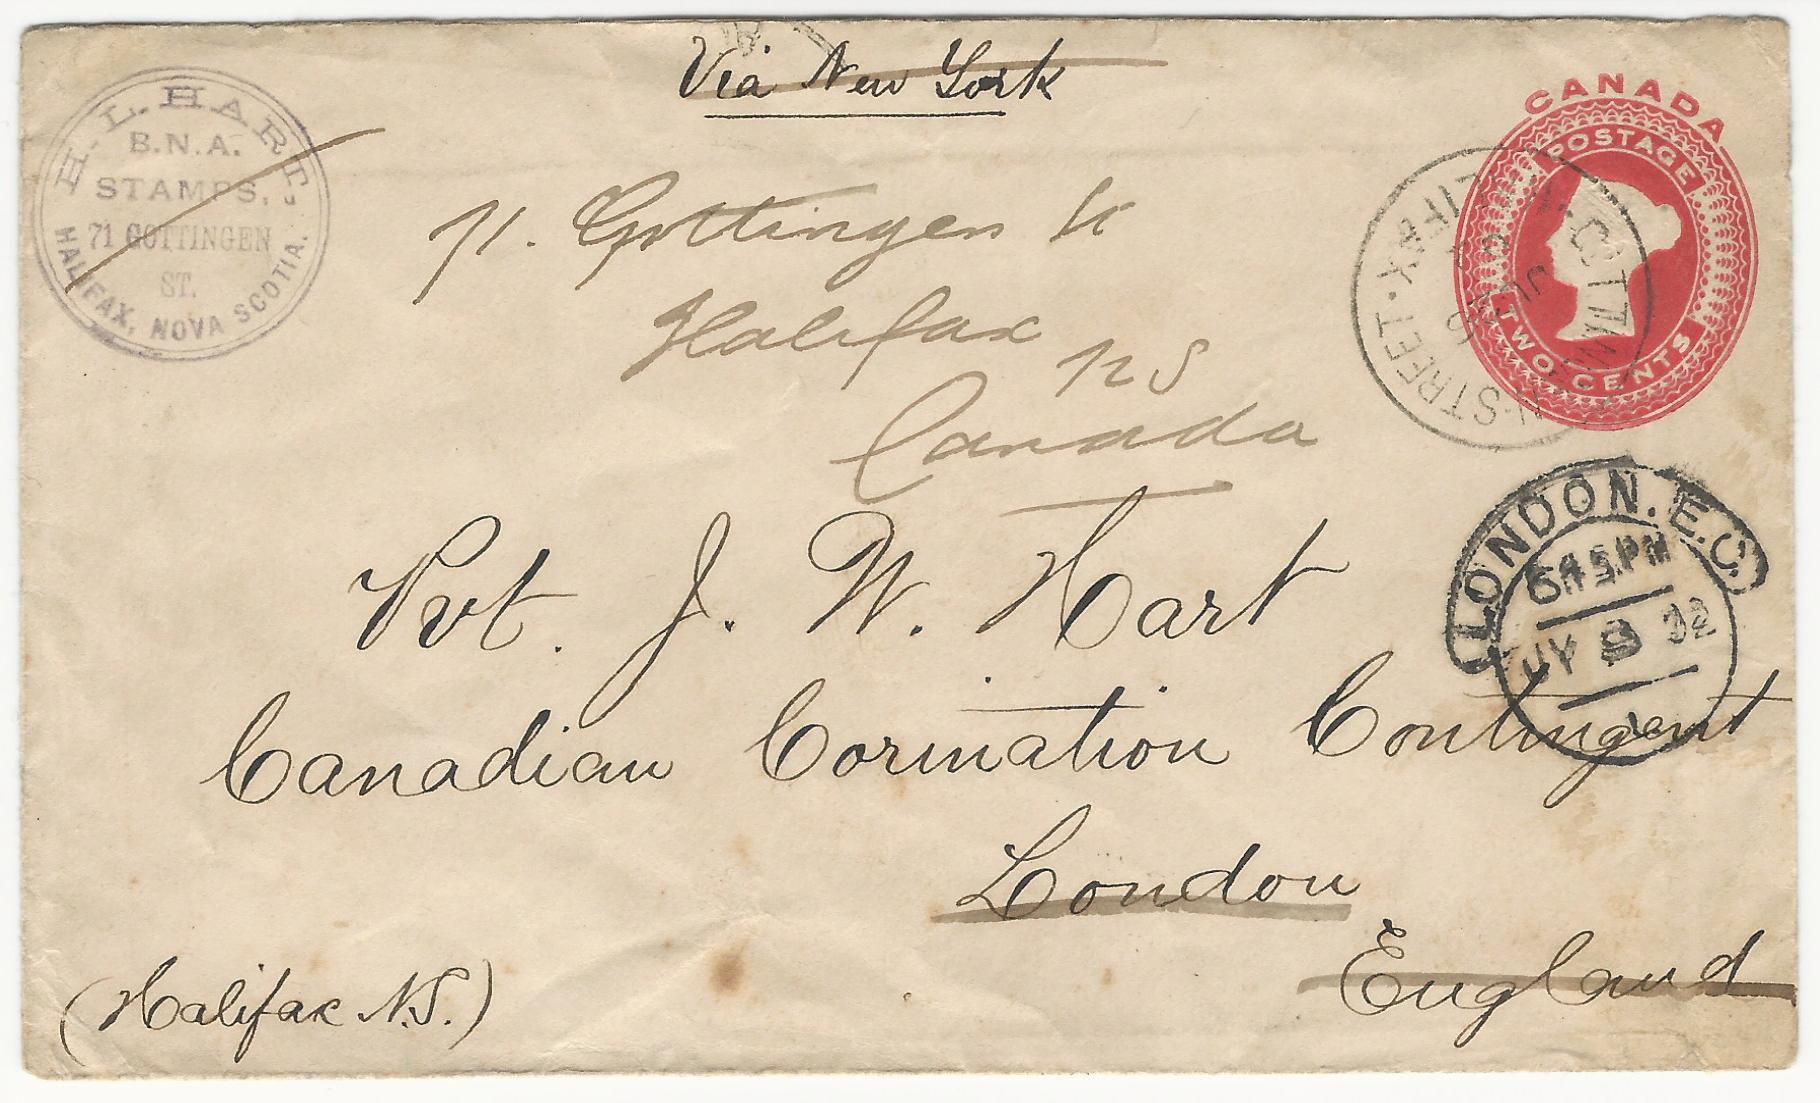 Via New York
H. L. HART.
B.N.A.
STAMPS.
71 GOTTINGEN
ST.
HALIFAX, NOVA SCOTIA.
CANADA
POSTAGE
TWO CENTS
STREET · HALIFAX
71. Gottingen St
Halifax
NS
Canada
LONDON. E.C.
6 45 PM
JY 8 02
Pvt. J. W. Hart
Canadian Cornation Contingent
London
England
(Halifax N.S.)